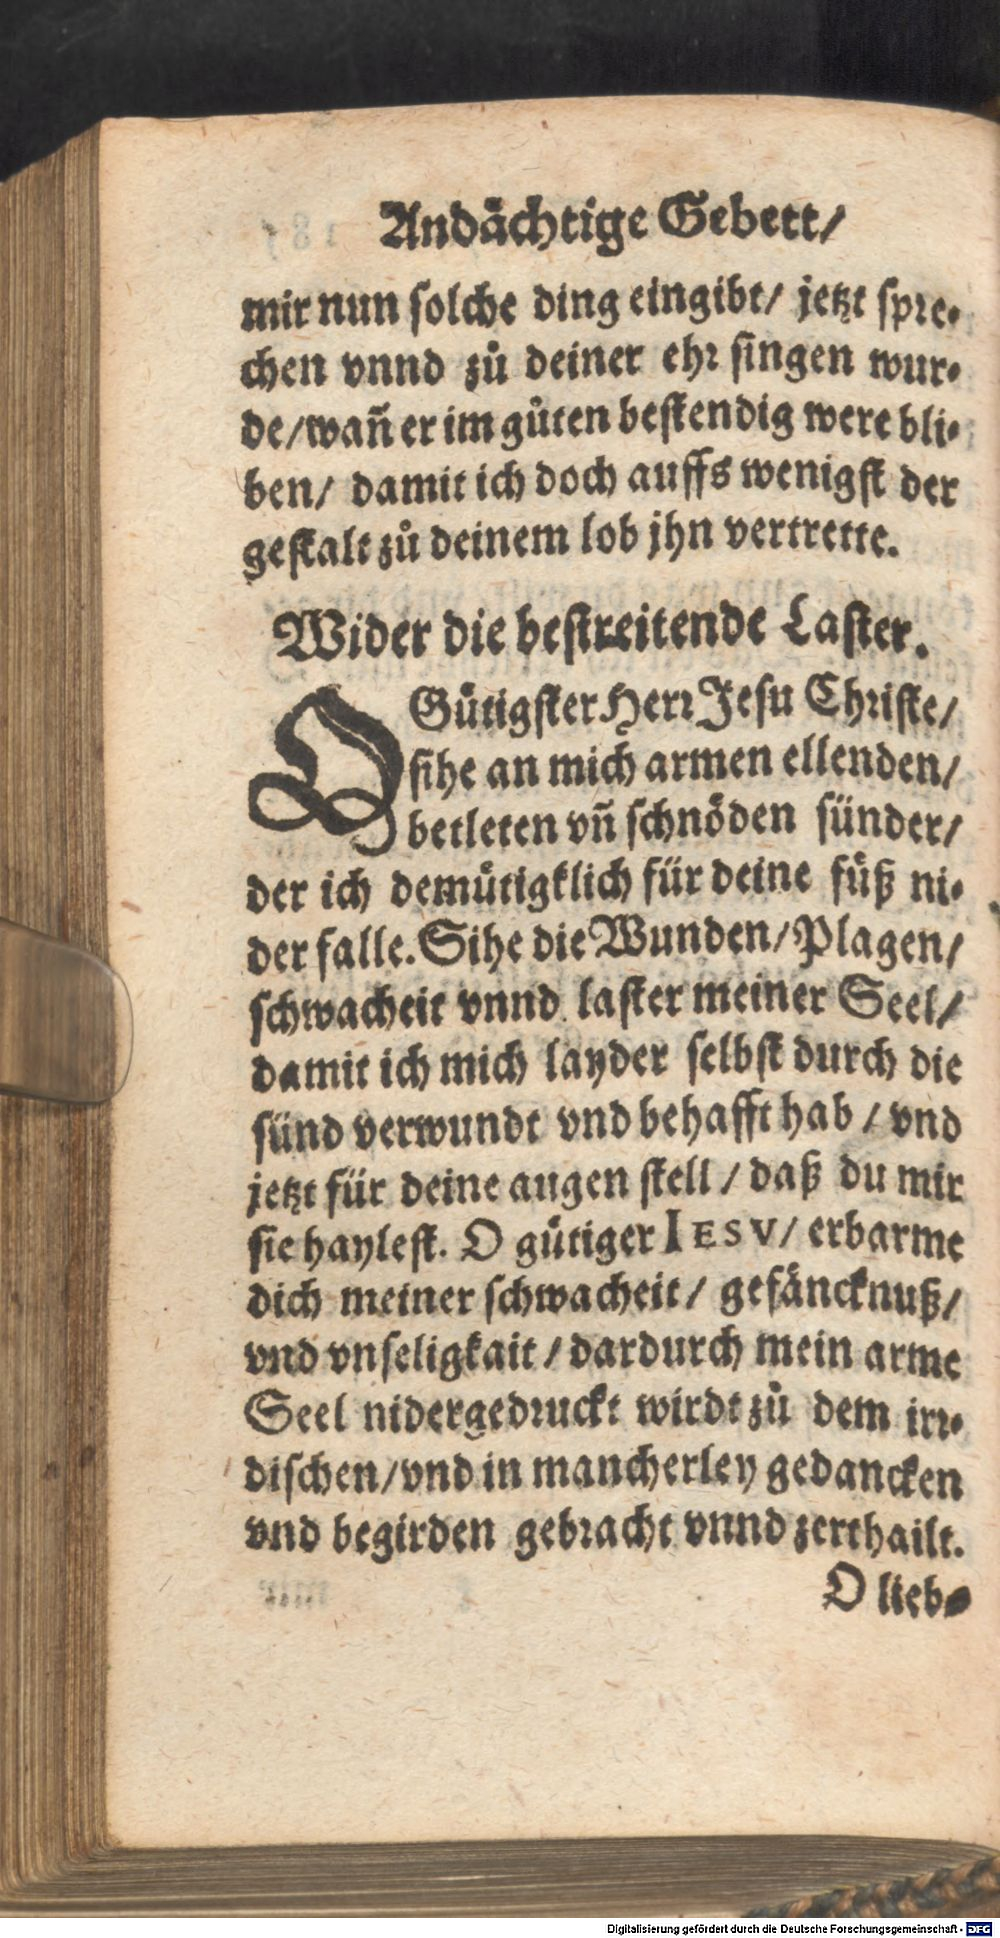 Andaͤchtige Gebett/
mir nun ſolche ding eingibt/ jetzt ſpre⸗
chen vnnd zů deiner ehr ſingen wur⸗
de/wañ er im gůten beſtendig were bli⸗
ben/ damit ich doch auffs wenigſt der
geſtalt zů deinem lob jhn vertrette.
Wider die beſtreitende Laſter.
O Guͤtigſter Herr Jeſu Chriſte/
ſihe an mich armen ellenden/
betleten vñ ſchnoͤden ſünder/
der ich demuͤtigklich für deine fuͤß ni⸗
der falle. Sihe die Wunden/Plagen/
ſchwacheit vnnd laſter meiner Seel/
damit ich mich layder ſelbſt durch die
ſünd verwundt vnd behafft hab / vnd
jetzt für deine augen ſtell / daß du mir
ſie hayleſt. O guͤtiger IESV/ erbarme
dich meiner ſchwacheit/ gefäncknuß/
vnd vnſeligkait / dardurch mein arme
Seel nidergedruckt wirdt zů dem irr⸗
diſchen/vnd in mancherley gedancken
vnd begirden gebracht vnnd zerthailt.
O lieb⸗
Digitalisierung gefördert durch die Deutsche Forschungsgemeinschaft - DFG